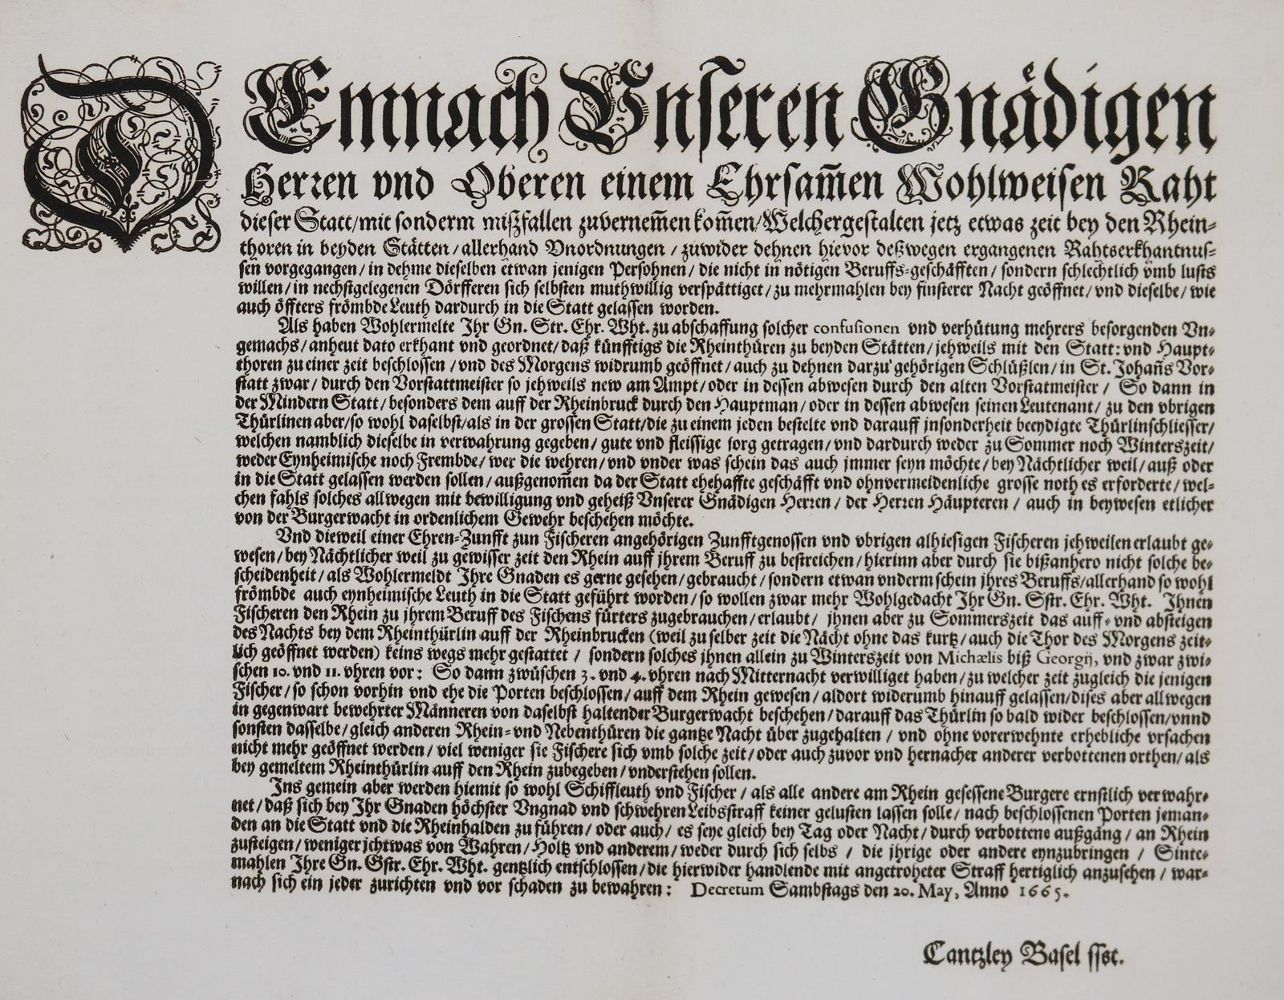 DEmnach Vnseren Gnädigen
Herren vnd Oberen einem Ehrsam̃en Wohlweisen Raht
dieser Statt/mit sonderm mißfallen zuvernem̃en kom̃en/Welchergestalten jetz etwas zeit bey den Rhein-
thoren in beyden Stätten/allerhand Vnordnungen/zuwider dehnen hievor deßwegen ergangenen Rahtserkhantnus-
sen vorgegangen/in dehme dieselben etwan jenigen Persohnen/die nicht in nötigen Beruffs-geschäfften/sondern schlechtlich vmb lusts
willen/in nechstgelegenen Dörfferen sich selbsten muthwillig verspättiget/zu mehrmahlen bey finsterer Nacht geöffnet/vnd dieselbe/wie
auch öffters frömbde Leuth dardurch in die Statt gelassen worden.
Als haben Wohlermelte Ihr Gn. Str. Ehr. Wht. zu abschaffung solcher confusionen vnd verhütung mehrers besorgenden Vn-
gemachs/anheut dato erkhant vnd geordnet/daß künfftigs die Rheinthüren zu beyden Stätten/jehweils mit den Statt: vnd Haupt-
thoren zu einer zeit beschlossen/vnd des Morgens widrumb geöffnet/auch zu dehnen darzu gehörigen Schlüßlen/in St. Johañs Vor-
statt zwar/durch den Vorstattmeister so jehweils new am Ampt/oder in dessen abwesen durch den alten Vorstatmeister/So dann in
der Mindern Statt/besonders dem auff der Rheinbruck durch den Hauptman/oder in dessen abwesen seinen Leutenant/zu den vbrigen
Thürlinen aber/so wohl daselbst/als in der grossen Statt/die zu einem jeden bestelte vnd darauff jnsonderheit beeydigte Thürlinschliesser/
welchen namblich dieselbe in verwahrung gegeben/gute vnd fleissige sorg getragen/vnd dardurch weder zu Sommer noch Winterszeit/
weder Eynheimische noch Frembde/wer die wehren/vnd vnder was schein das auch jmmer seyn möchte/bey Nächtlicher weil/auß oder
in die Statt gelassen werden sollen/außgenom̃en da der Statt ehehaffte geschäfft vnd ohnvermeidenliche grosse noth es erforderte/wel-
chen fahls solches allwegen mit bewilligung vnd geheiß Vnserer Gnädigen Herren/der Herren Häupteren/auch in beywesen etlicher
von der Burgerwacht in ordenlichem Gewehr beschehen möchte.
Vnd dieweil einer Ehren-Zunfft zun Fischeren angehörigen Zunfftgenossen vnd vbrigen alhiesigen Fischeren jehweilen erlaubt ge-
wesen/bey Nächtlicher weil zu gewisser zeit den Rhein auff jhrem Beruff zu bestreichen/hierinn aber durch sie bißanhero nicht solche be-
scheidenheit/als Wohlermeldt Ihre Gnaden es gerne gesehen/gebraucht/sondern etwan vnderm schein jhres Beruffs/allerhand so wohl
frömbde auch eynheimische Leuth in die Statt geführt worden/so wollen zwar mehr Wohlgedacht Ihr Gn. Sstr. Ehr. Wht. Ihnen
Fischeren den Rhein zu jhrem Beruff des Fischens fürters zugebrauchen/erlaubt/jhnen aber zu Sommerszeit das auff- vnd absteigen
des Nachts bey dem Rheinthürlin auff der Rheinbrucken (weil zu selber zeit die Nächt ohne das kurtz/auch die Thor des Morgens zeit-
lich geöffnet werden) keins wegs mehr gestattet/sondern solches jhnen allein zu Winterszeit von Michælis biß Georgij, vnd zwar zwi-
schen 10. vnd 11. vhren vor: So dann zwüschen 3. vnd 4. vhren nach Mitternacht verwilliget haben/zu welcher zeit zugleich die jenigen
Fischer/so schon vorhin vnd ehe die Porten beschlossen/auff dem Rhein gewesen/aldort widerumb hinauff gelassen/dises aber allwegen
in gegenwart bewehrter Männeren von daselbst haltender Burgerwacht beschehen/darauff das Thürlin so bald wider beschlossen/vnnd
sonsten dasselbe/gleich anderen Rhein- vnd Nebenthüren die gantze Nacht über zugehalten/vnd ohne vorerwehnte erhebliche vrsachen
nicht mehr geöffnet werden/viel weniger sie Fischere sich vmb solche zeit/oder auch zuvor vnd hernacher anderer verbottenen orthen/als
bey gemeltem Rheinthürlin auff den Rhein zubegeben/vnderstehen sollen.
Ins gemein aber werden hiemit so wohl Schiffleuth vnd Fischer/als alle andere am Rhein gesessene Burgere ernstlich verwahr-
net/daß sich bey Ihr Gnaden höchster Vngnad vnd schwehren Leibsstraff keiner gelusten lassen solle/nach beschlossenen Porten jeman-
den an die Statt vnd die Rheinhalden zu führen/oder auch/es seye gleich bey Tag oder Nacht/durch verbottene außgäng/an Rhein
zusteigen/weniger jchtwas von Wahren/Holtz vnd anderem/weder durch sich selbs/die jhrige oder andere eynzubringen/Sinte-
mahlen Ihre Gn. Gstr. Ehr. Wht. gentzlich entschlossen/die hierwider handlende mit angetroheter Straff hertiglich anzusehen/war-
nach sich ein jeder zurichten vnd vor schaden zu bewahren: Decretum Sambstags den 20. May, Anno 1665.
Cantzley Basel ssst.